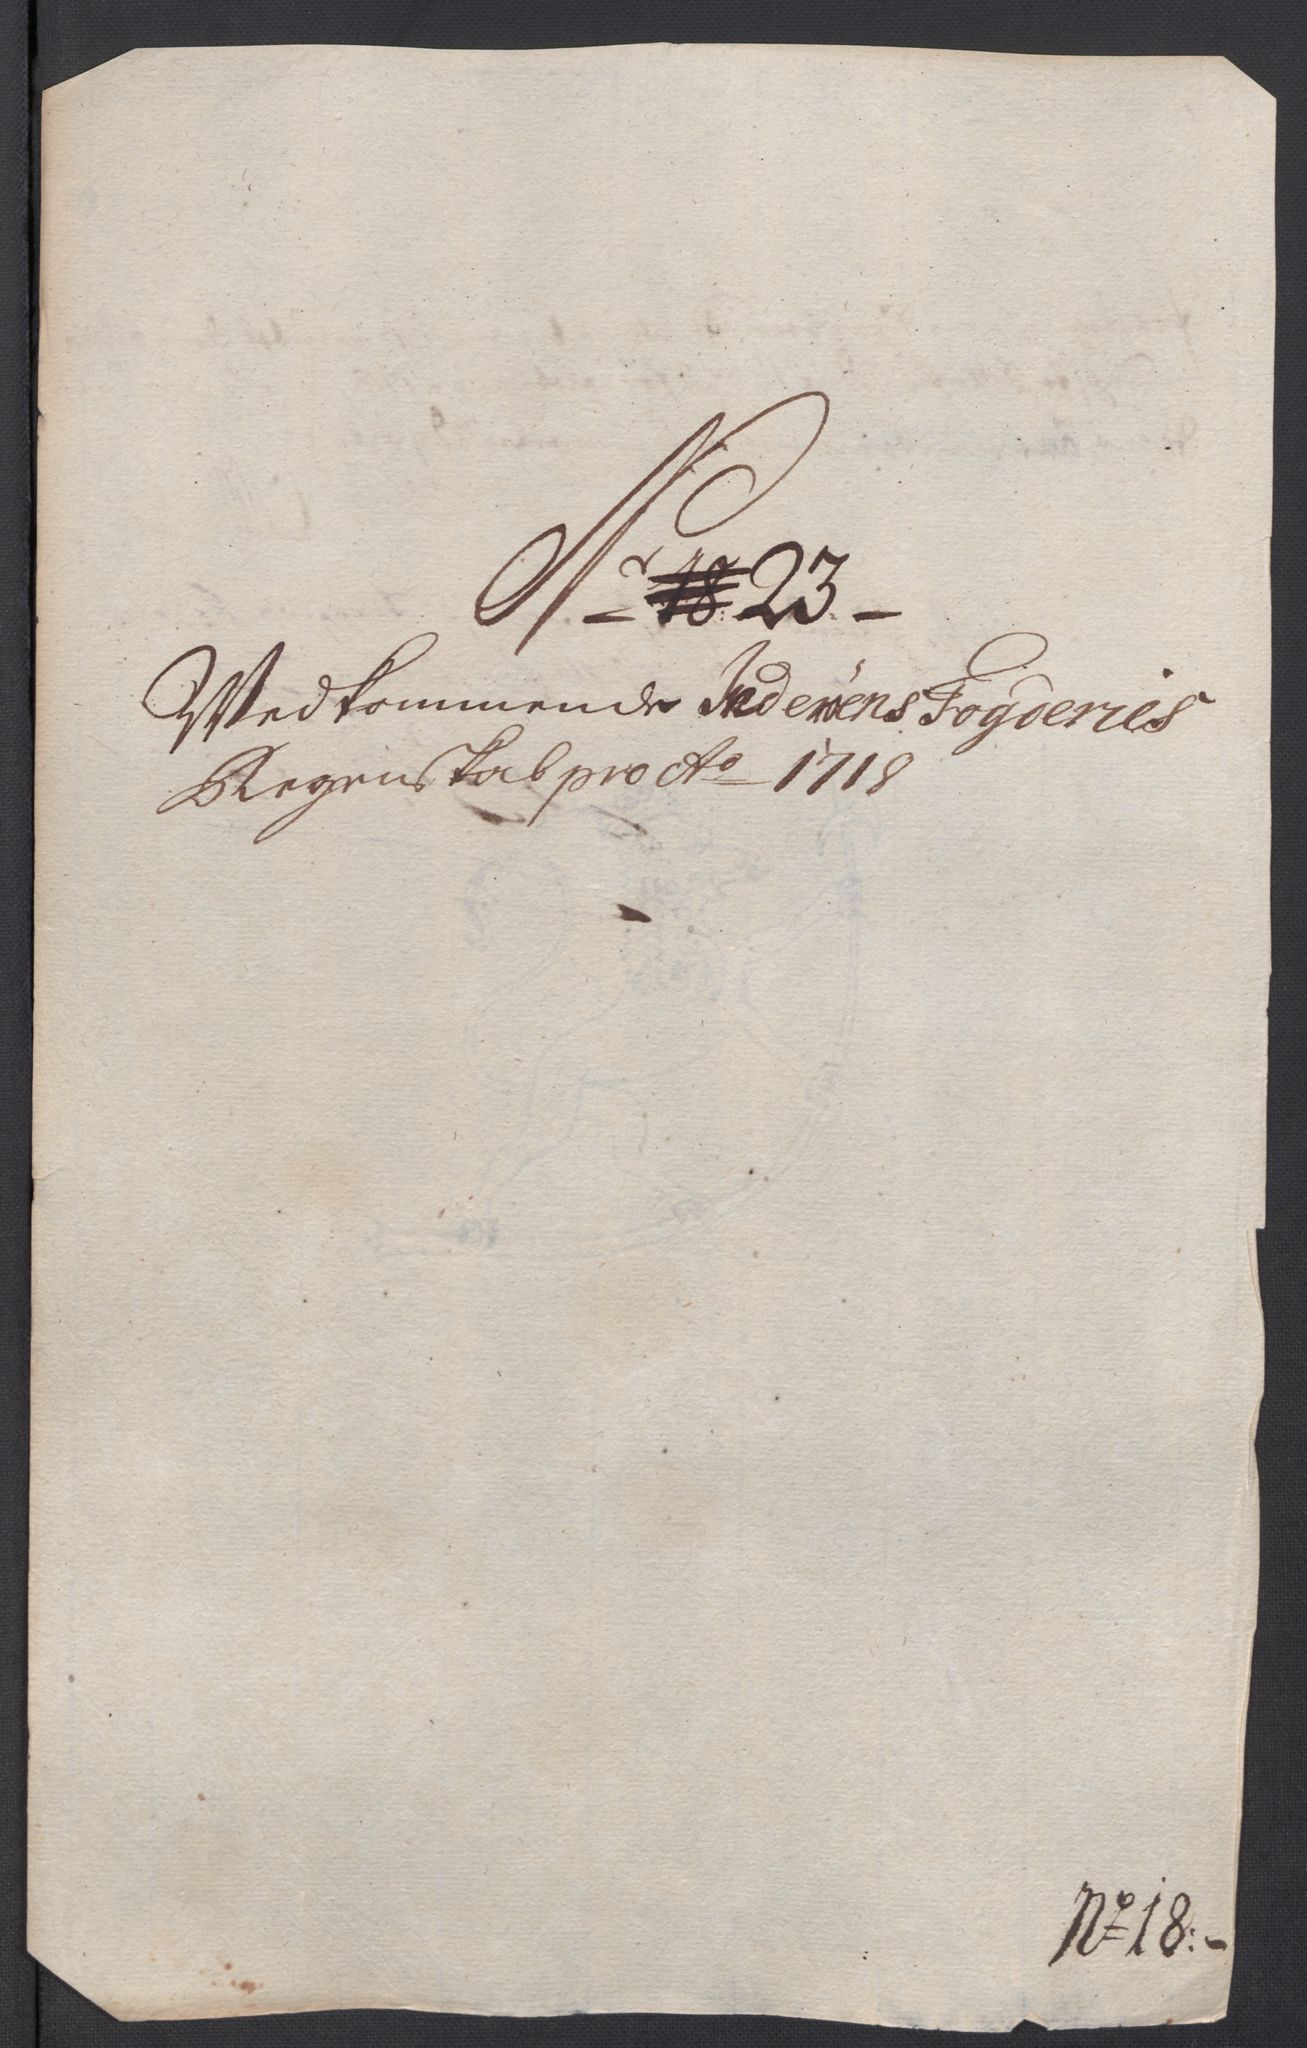 Nr 18: 23.-
Vedkommende Inderöens Fogderies
Regenskab pro Ao 1718
No 18:-